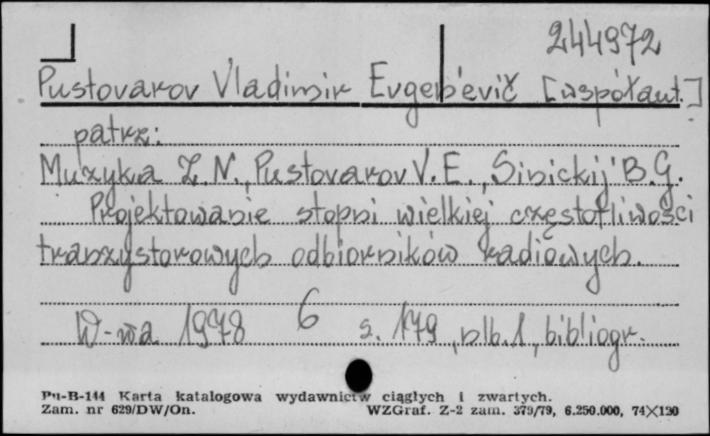 244972
Pustovarov Vladimir Evgen'evič [współaut.]
patrz:
Muzyka Z. N., Pustovarov V. E., Sinickij B. G.
Projektowanie stopni wielkiej częstotliwości
tranzystorowych odbiorników radiowych.
W-wa 1978 6 s. 179, nlb. 1, bibliogr.
Pu-B-144 Karta katalogowa wydawnictw ciągłych i zwartych.
Zam. nr 629/DW/On. WZGraf. Z-2 zam. 379/79, 6.250.000, 74×120